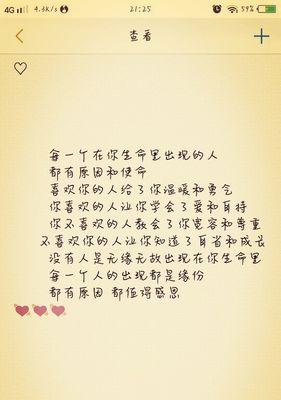 4G 4.3K/s 21:25 59%
查看
每一个在你生命里出现的人
都有原因和使命
喜欢你的人给了你温暖和勇气
你喜欢的人让你学会了爱和自持
你不喜欢的人教会了你宽容和尊重
不喜欢你的人让你知道了自省和成长
没有人是无缘无故出现在你生命里
每一个人的出现都是缘份
都有原因 都值得感恩